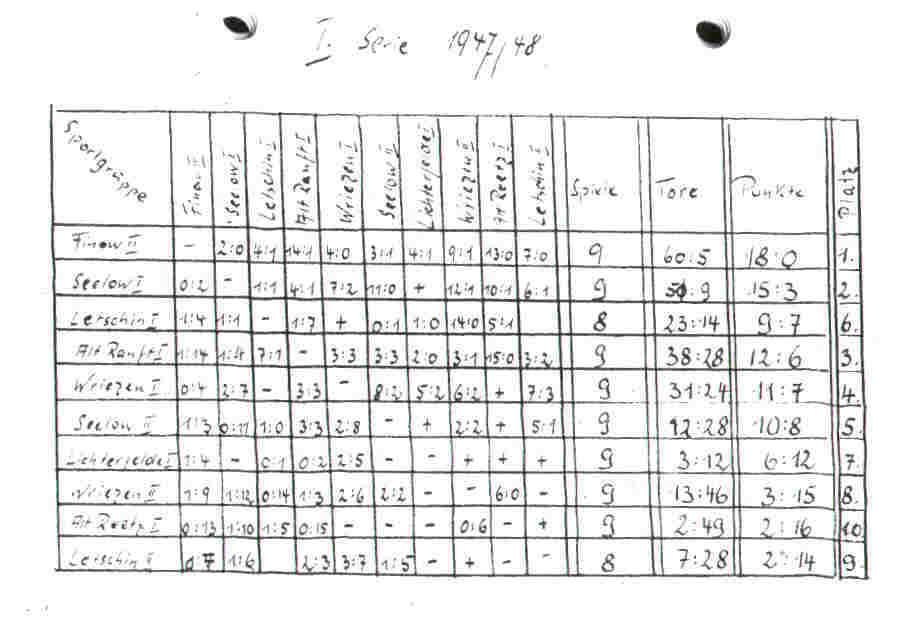 I. Serie 1947/48
Sportgruppe Finow II Seelow I Letschin I Alt Ranft I Wriezen I Seelow II Lichterfelde I Wriezen II Alt Reetz I Letschin II Spiele Tore Punkte Platz
Finow II - 2:0 4:1 14:1 4:0 3:1 4:1 9:1 13:0 7:0 9 60:5 18:0 1.
Seelow I 0:2 - 1:1 4:1 7:2 11:0 + 12:1 10:1 6:1 9 :9 15:3 2.
Letschin I 1:4 1:1 - 1:7 + 0:1 1:0 14:0 5:1 8 23:14 9:7 6.
Alt Ranft I 1:14 1:4 7:1 - 3:3 3:3 2:0 3:1 15:0 3:2 9 38:28 12:6 3.
Wriezen I 0:4 2:7 - 3:3 - 8:2 5:2 6:2 + 7:3 9 31:24 11:7 4.
Seelow II 1:3 0:11 1:0 3:3 2:8 - + 2:2 + 5:1 9 12:28 10:8 5.
Lichterfelde I 1:4 - 0:1 0:2 2:5 - - + + + 9 3:12 6:12 7.
Wriezen II 1:9 1:12 0:14 1:3 2:6 2:2 - - 6:0 - 9 13:46 3:15 8.
Alt Reetz I 0:13 1:10 1:5 0:15 - - - 0:6 - + 9 2:49 2:16 10.
Letschin II 0:7 1:6 2:3 3:7 1:5 - + - - 8 7:28 2:14 9.